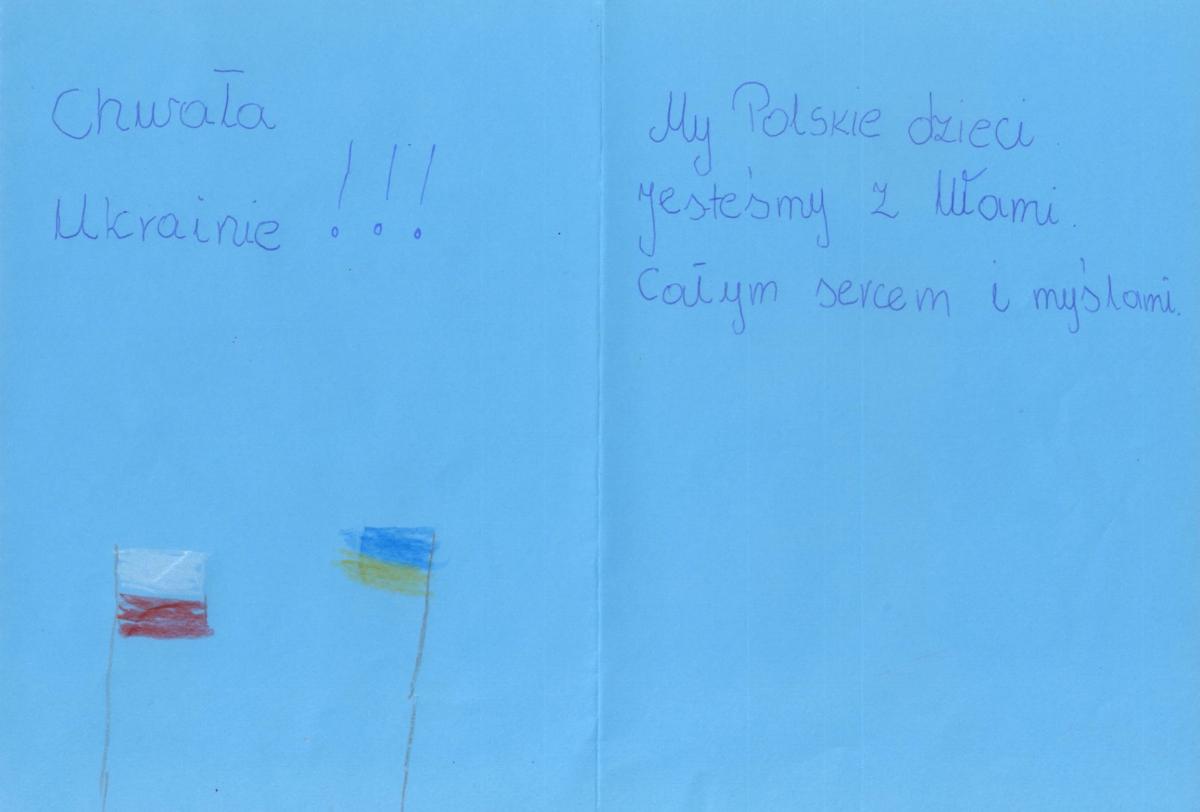 Chwała
Ukrainie !!!
My Polskie dzieci
jesteśmy z Wami.
Całym sercem i myślami.